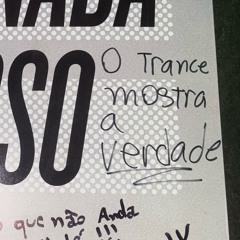 NADA
SO
O Trance
mostra
a
verdade
que não Anda
!!!